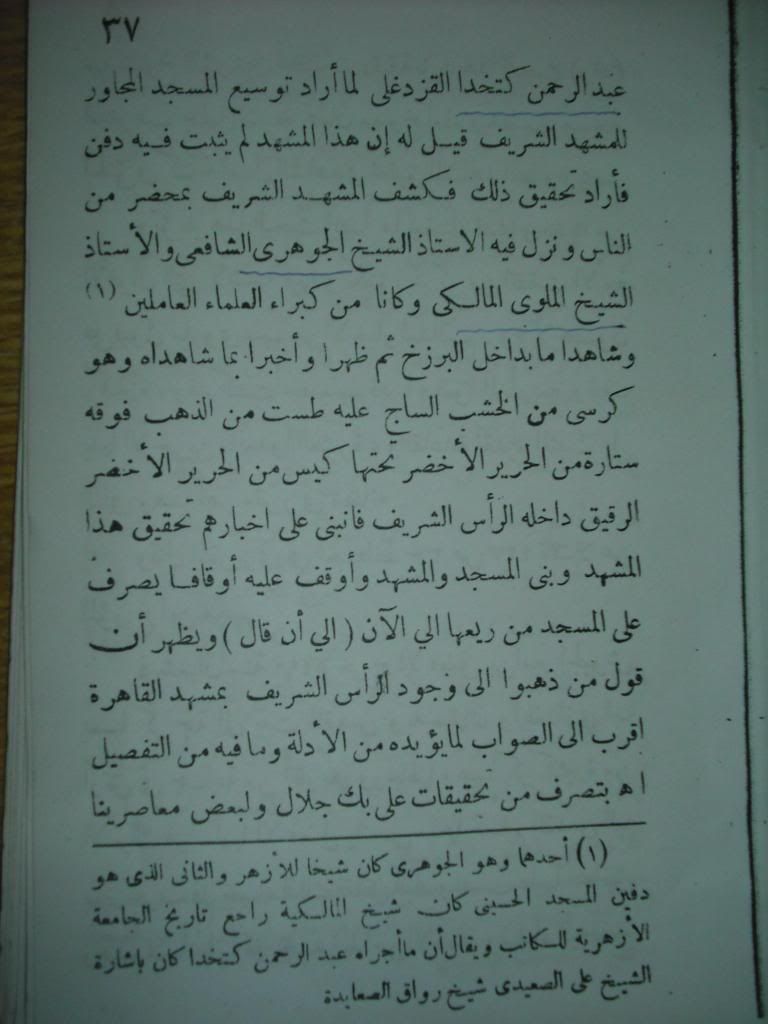 ٣٧
عبد الرحمن كتخدا القزدغلى لما أراد توسيع المسجد المجاور
للمشهد الشريف قيل له إن هذا المشهد لم يثبت فيه دفن
فأراد تحقيق ذلك فكشف المشهد الشريف بمحضر من
الناس ونزل فيه الاستاذ الشيخ الجوهرى الشافعى والأستاذ
الشيخ الملوى المالكى وكانا من كبراء العلماء العاملين (١)
وشاهدا ما بداخل البرزخ ثم ظهرا وأخبرا بما شاهداه وهو
كرسى من الخشب الساج عليه طست من الذهب فوقه
ستارة من الحرير الأخضر تحتها كيس من الحرير الأخضر
الرقيق داخله الرأس الشريف فانبنى على اخبارهم تحقيق هذا
المشهد وبنى المسجد والمشهد وأوقف عليه أوقافا يصرف
على المسجد من ريعها الي الآن ( الي أن قال ) ويظهر أن
قول من ذهبوا الى وجود الرأس الشريف بمشهد القاهرة
اقرب الى الصواب لما يؤيده من الأدلة وما فيه من التفصيل
اه بتصرف من تحقيقات على بك جلال ولبعض معاصرينا
(١) أحدهما وهو الجوهرى كان شيخا للأزهر والثانى الذى هو
دفين المسجد الحسينى كان شيخ المالكية راجع تاريخ الجامعة
الأزهرية للكاتب ويقال أن ما أجراه عبد الرحمن كتخدا كان باشارة
الشيخ على الصعيدى شيخ رواق الصعايدة